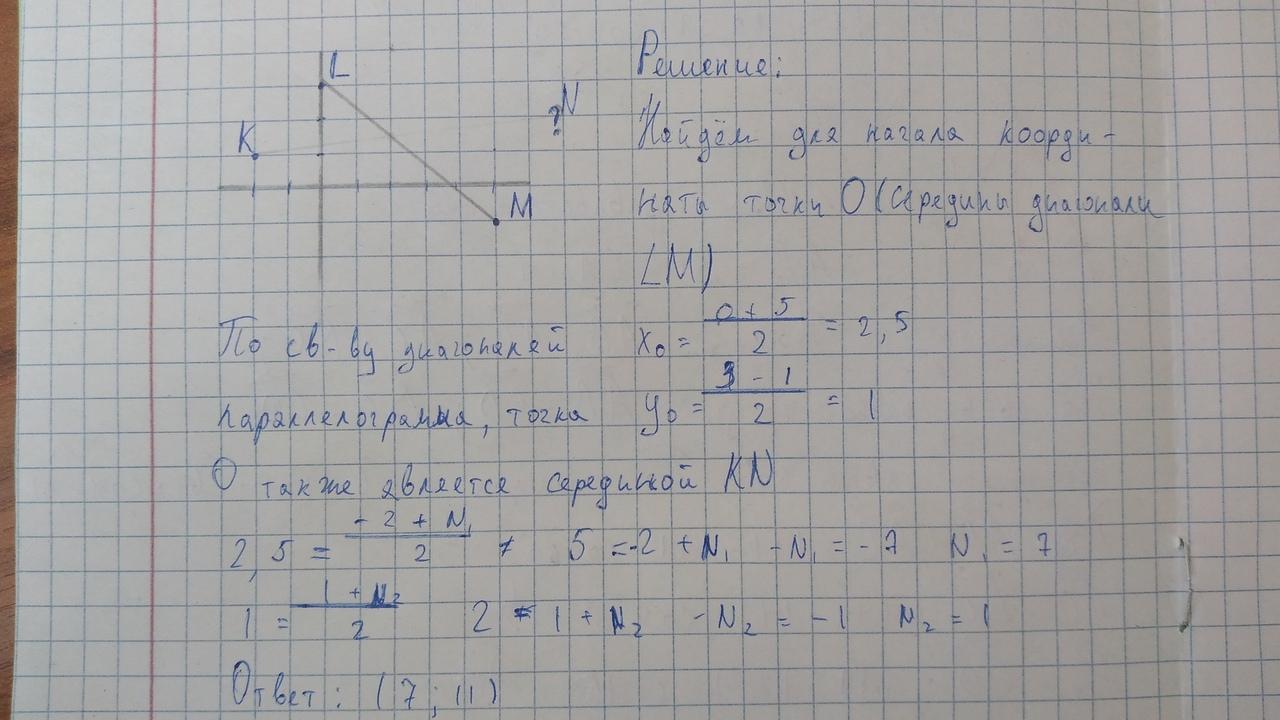 L
K
N
?
M
Решение:
Найдём для начала коорди-
наты точки O (середины диагонали
LM)
По св-ву диагоналей
параллелограмма, точка
x₀ = (0 + 5)/2 = 2,5
y₀ = (3 - 1)/2 = 1
О также является серединой KN
2,5 = (-2 + N₁)/2 5 = -2 + N₁ -N₁ = -7 N₁ = 7
1 = (1 + N₂)/2 2 = 1 + N₂ -N₂ = -1 N₂ = 1
Ответ: (7; 11)